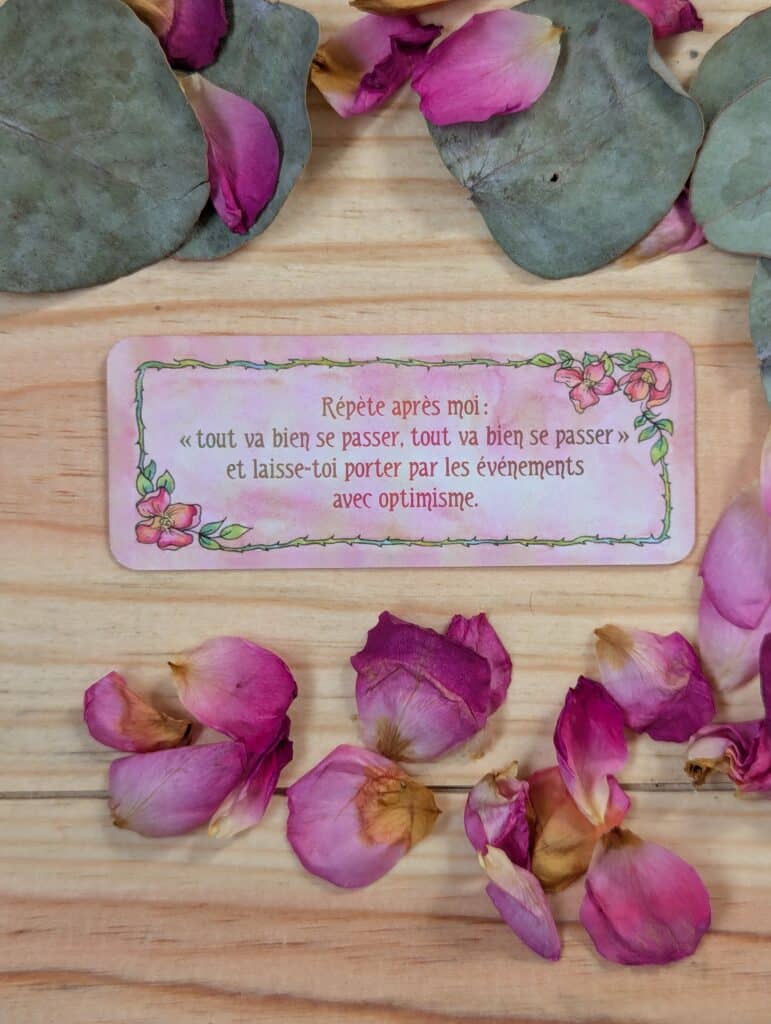 Répète après moi :
« tout va bien se passer, tout va bien se passer »
et laisse-toi porter par les événements
avec optimisme.